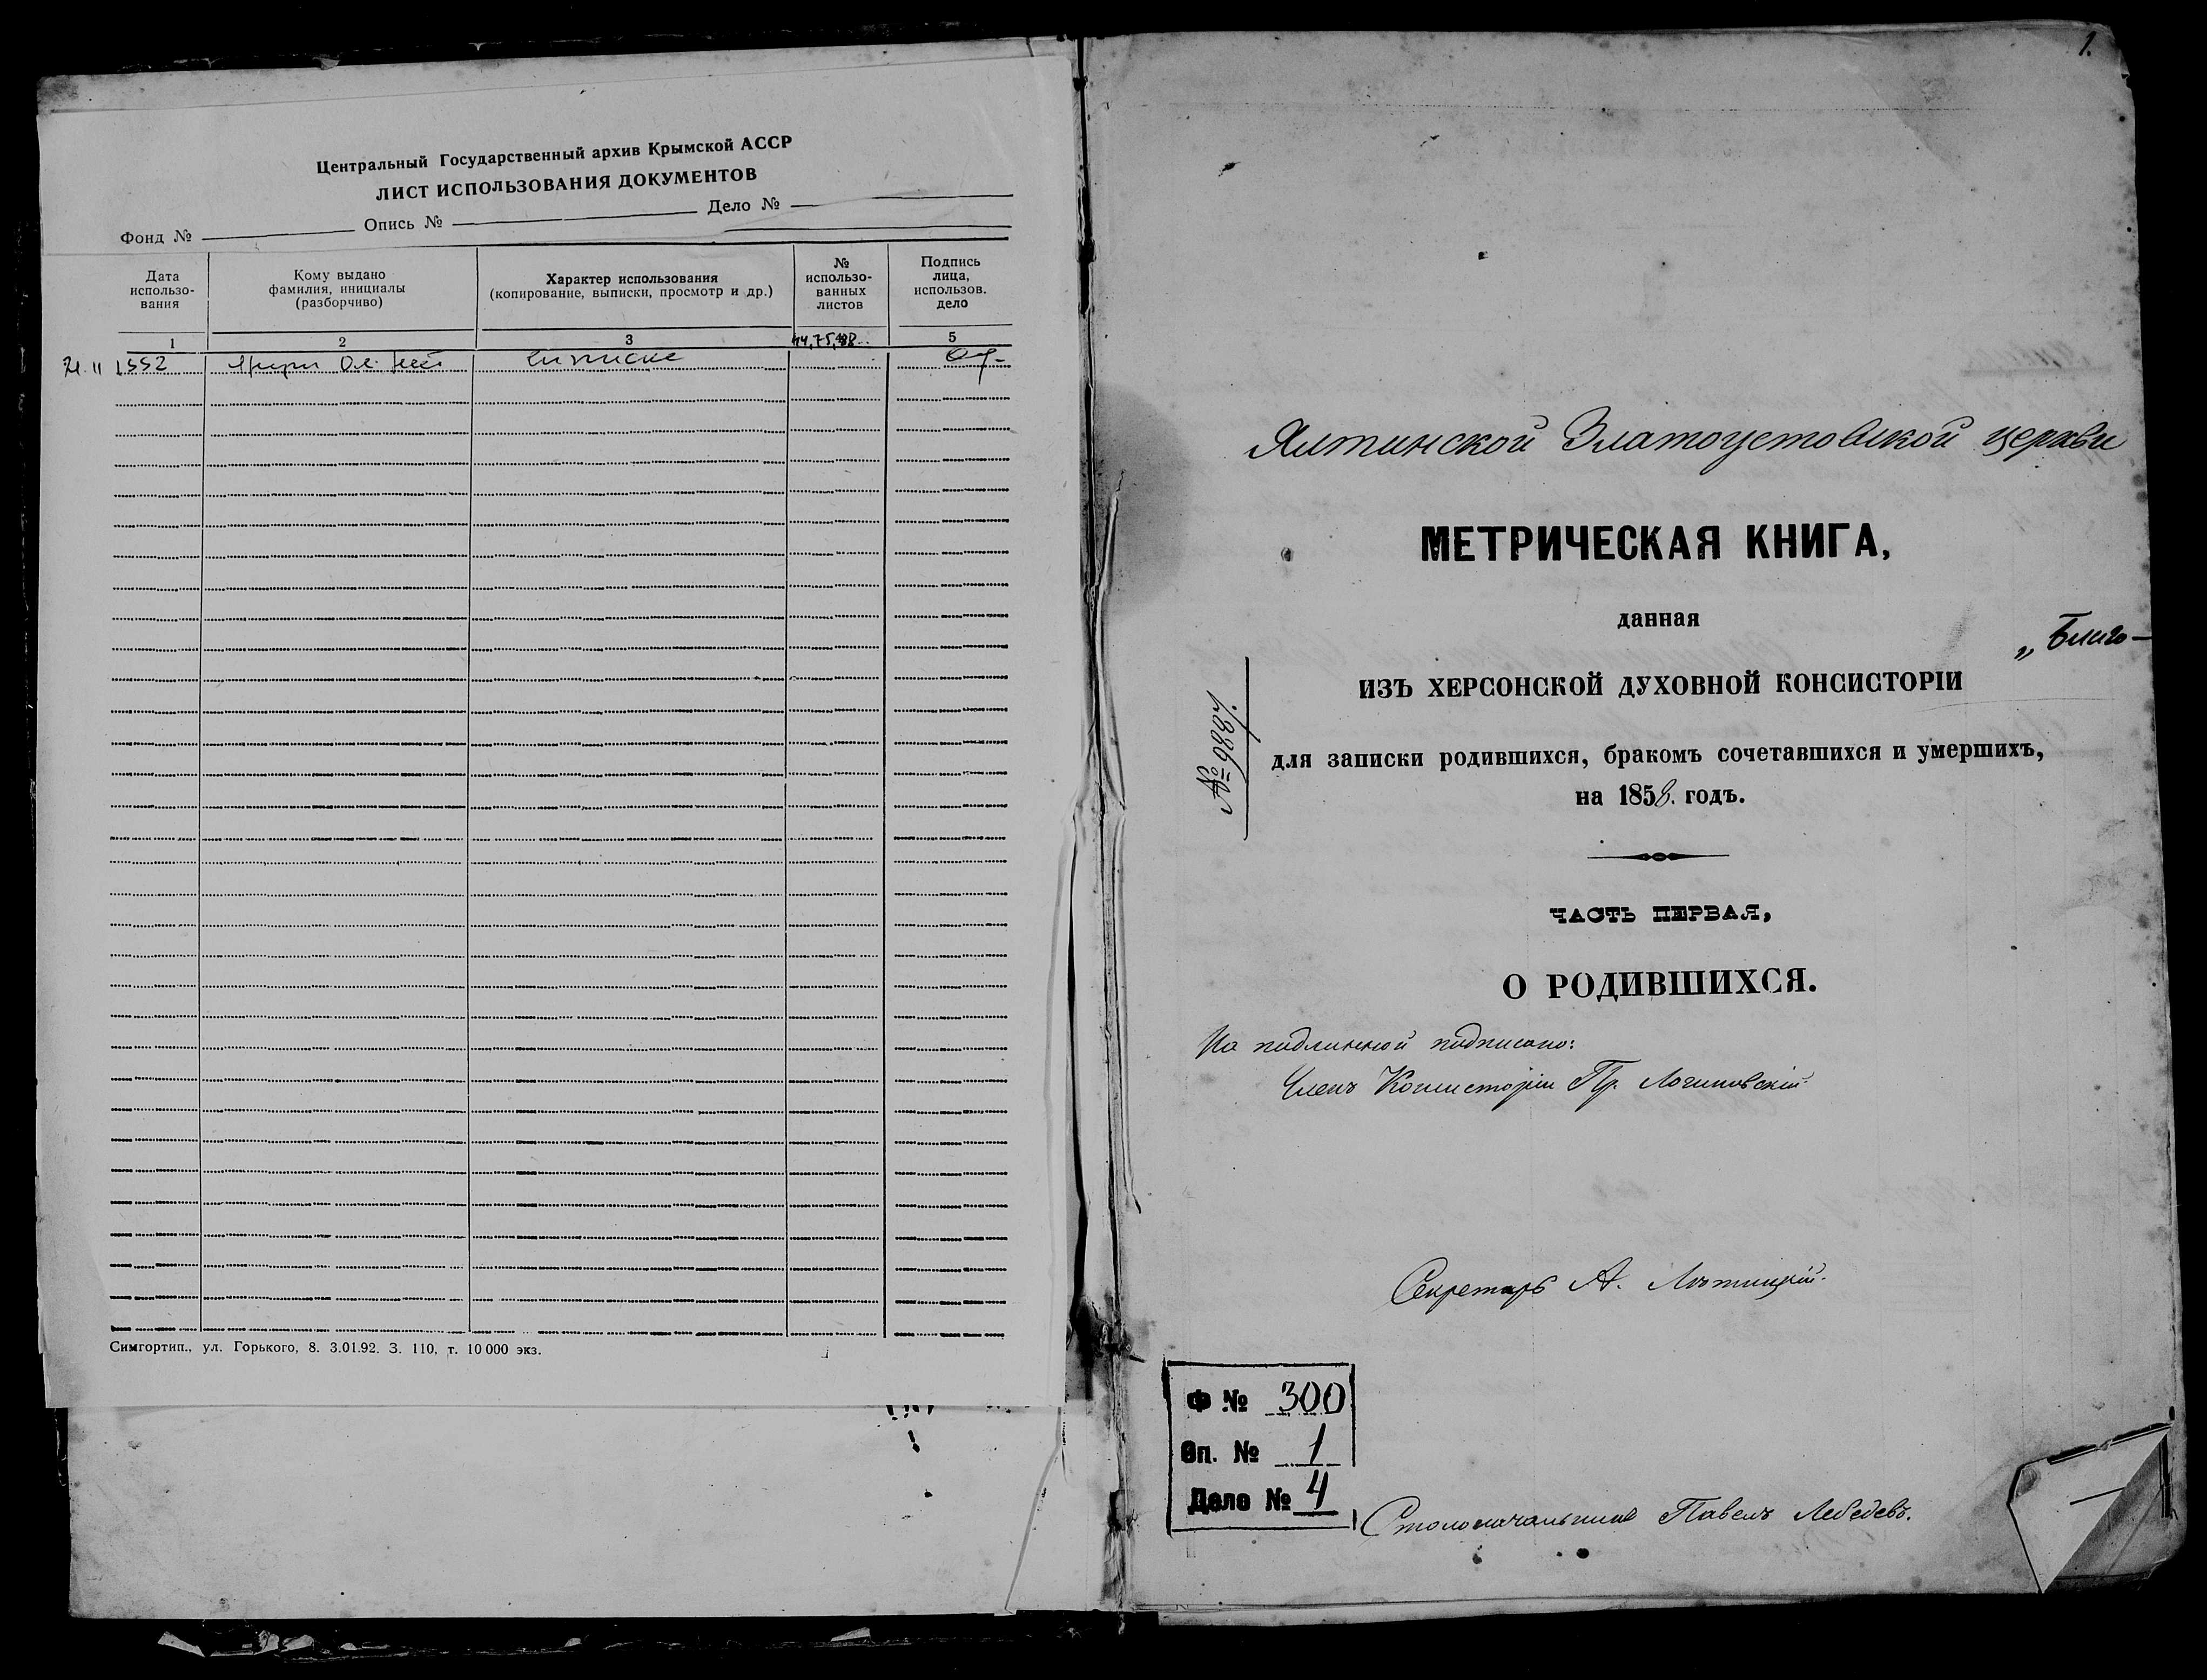 Центральный Государственный архив Крымской АССР
ЛИСТ ИСПОЛЬЗОВАНИЯ ДОКУМЕНТОВ
Фонд № Опись № Дело №
Дата использо-вания
Кому выдано фамилия, инициалы (разборчиво)
Характер использования (копирование, выписки, просмотр и др.)
№ использо-ванных листов
Подпись лица, использов. дело
1 2 3 5
Симгортип., ул. Горького, 8. 3.01.92. З. 110, т. 10 000 экз.
1.
Ялтинской Златоустовской церкви
МЕТРИЧЕСКАЯ КНИГА,
данная
„Благо-
ИЗЪ ХЕРСОНСКОЙ ДУХОВНОЙ КОНСИСТОРІИ
для записки родившихся, бракомъ сочетавшихся и умершихъ,
на 1858. годъ.
№ 9887.
ЧАСТЬ ПЕРВАЯ,
О РОДИВШИХСЯ.
На подлинной подписано:
Членъ Консисторіи Пр. Логиновскій.
Секретарь А.
Ф № 300
Оп. № 1
Дело № 4
Столоначальникъ Павелъ Лебедевъ.